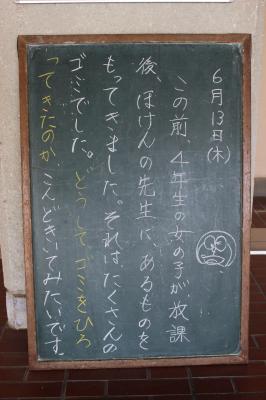 6月13日(木)
この前、4年生の女の子が、放課
後、ほけんの先生に、あるものを
もってきました。それはたくさんの
ゴミでした。どうしてゴミをひろ
ってきたのか、こんどきいてみたいです。